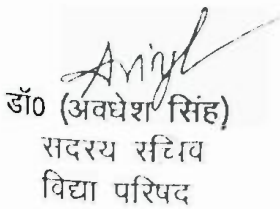 डॉ0 (अवधेश सिंह)
सदस्य सचिव
विद्या परिषद